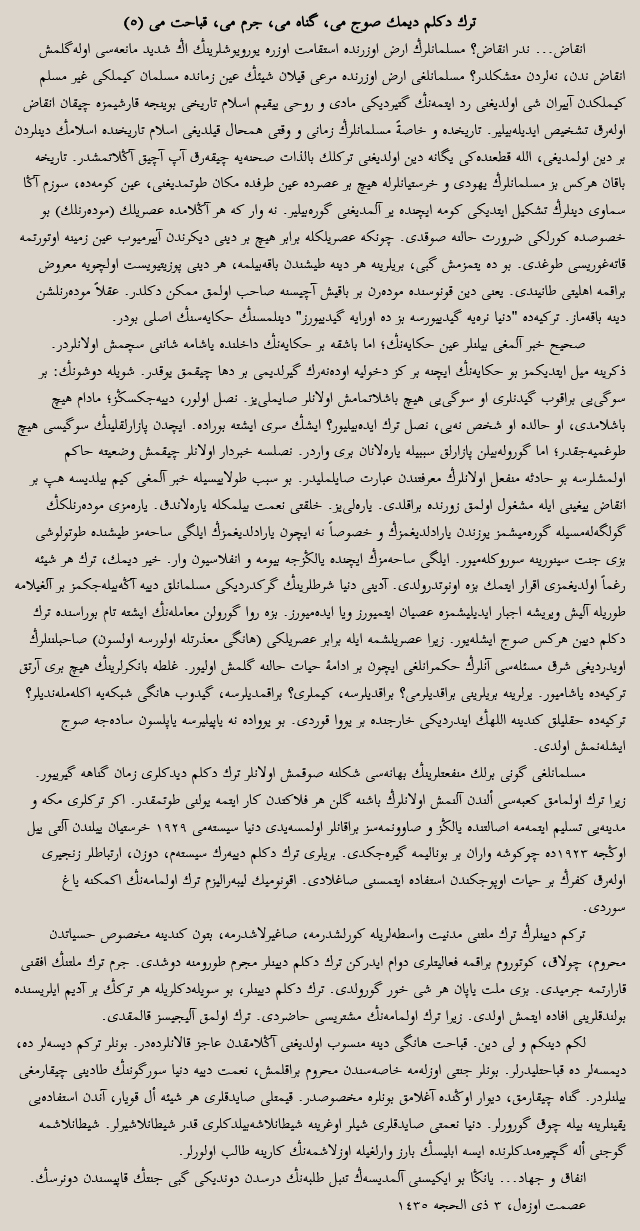 ترك دكلم دیمك صوچ می، گناه می، جرم می، قباحت می (٥)
انقاض... ندر انقاض؟ مسلمانلرڭ ارض اوزرنده استقامت اوزره یورویوشلرینڭ اڭ شدید مانعه‌سی اوله‌گلمش
انقاض ندن، نه‌لردن متشكلدر؟ مسلمانلغی ارض اوزرنده مرعی قیلان شیئڭ عین زمانده مسلمان كیملكی غیر مسلم
كیملكدن آییران شی اولدیغنی رد ایتمه‌نڭ گتیردیكی مادی و روحی ییقیم اسلام تاریخی بوینجه قارشیمزه چیقان انقاض
اوله‌رق تشخیص ایدیله‌بیلیر. تاریخده و خاصةً مسلمانلرڭ زمانی و وقتی همحال قیلدیغی اسلام تاریخنده اسلامڭ دینلردن
بر دین اولمدیغی، الله قطعنده‌كی یگانه دین اولدیغنی تركلك بالذات صحنه‌یه چیقه‌رق آپ آچیق آڭلاتمشدر. تاریخه
باقان هركس بز مسلمانلرڭ یهودی و خرستیانلرله هیچ بر عصرده عین طرفده مكان طوتمدیغنی، عین كومه‌ده، سوزم آڭا
سماوی دینلرڭ تشكیل ایتدیكی كومه ایچنده یر آلمدیغنی گوره‌بیلیر. نه وار كه هر آڭلامده عصریلك (موده‌رنلك) بو
خصوصده كورلكی ضرورت حالنه صوقدی. چونكه عصریلكله برابر هیچ بر دینی دیكرندن آییرمیوب عین زمینه اوتورتمه
قاته‌غوریسی طوغدی. بو ده یتمزمش گبی، بریلرینه هر دینه طیشندن باقه‌بیلمه، هر دینی پوزیتیویست اولچویه معروض
براقمه اهلیتی طانیندی. یعنی دین قونوسنده موده‌رن بر باقیش آچیسنه صاحب اولمق ممكن دكلدر. عقلاً موده‌رنلشن
دینه باقه‌ماز. تركیه‌ده "دنیا نره‌یه گیدییورسه بز ده اورایه گیدییورز" دینلمسنڭ حكایه‌سنڭ اصلی بودر.
صحیح خبر آلمغی بیلنلر عین حكایه‌نڭ؛ اما باشقه بر حكایه‌نڭ داخلنده یاشامه شاننی سچمش اولانلردر.
ذكرینه میل ایتدیكمز بو حكایه‌نڭ ایچنه بر كز دخولیه اوده‌نه‌رك گیرلدیمی بر دها چیقمق یوقدر. شویله دوشونڭ: بر
سوگی‌یی براقوب گیدنلری او سوگی‌یی هیچ باشلاتمامش اولانلر صایملی‌یز. نصل اولور، دییه‌جكسڭز؛ مادام هیچ
باشلامدی، او حالده او شخص نه‌یی، نصل ترك ایده‌بیلیور؟ ایشڭ سری ایشته بوراده. ایچدن پازارلقلینڭ سوگیسی هیچ
طوغمیه‌جقدر؛ اما گوروله‌بیلن پازارلق سببیله یاره‌لانان بری واردر. نصلسه خبردار اولانلر چیقمش وضعیته حاكم
اولمشلرسه بو حادثه منفعل اولانلرڭ معرفتندن عبارت صایلملیدر. بو سبب طولاییسیله خبر آلمغی كیم بیلدیسه هپ بر
انقاض ییغینی ایله مشغول اولمق زورنده براقلدی. یاره‌لی‌یز. خلقتی نعمت بیلمكله یاره‌لاندق. یاره‌مزی موده‌رنلكڭ
گولگه‌له‌مسیله گوره‌میشمز یوزندن یارادلدیغمزڭ و خصوصاً نه ایچون یارادلدیغمزڭ ایلگی ساحه‌مز طیشنده طوتولوشی
بزی جنت سینورینه سوروكله‌میور. ایلگی ساحه‌مزڭ ایچنده یالڭزجه بیومه و انفلاسیون وار. خیر دیمك، ترك هر شیئه
رغماً اولدیغمزی اقرار ایتمك بزه اونوتدرولدی. آدینی دنیا شرطلرینڭ گركدردیكی مسلمانلق دییه آڭه‌بیله‌جكمز بر آلغیلامه
طوریله آلیش ویریشه اجبار ایدیلیشمزه عصیان ایتمیورز ویا ایده‌میورز. بزه روا گورولن معامله‌نڭ ایشته تام بوراسنده ترك
دكلم دیین هركس صوچ ایشله‌یور. زیرا عصریلشمه ایله برابر عصریلكی (هانگی معذرتله اولورسه اولسون) صاحبلننلرڭ
اویدردیغی شرق مسئله‌سی آنلرڭ حكمرانلغی ایچون بر ادامهٔ حیات حالنه گلمش اولیور. غلطه بانكرلرینڭ هیچ بری آرتق
تركیه‌ده یاشامیور. یرلرینه بریلرینی براقدیلرمی؟ براقدیلرسه، كیملری؟ براقمدیلرسه، گیدوب هانگی شبكه‌یه اكله‌مله‌ندیلر؟
تركیه‌ده حقلیلق كندینه اللهڭ ایندردیكی خارجنده بر یووا قوردی. بو یوواده نه یاپیلیرسه یاپلسون ساده‌جه صوچ
ایشله‌نمش اولدی.
مسلمانلغی گونی برلك منفعتلرینڭ بهانه‌سی شكلنه صوقمش اولانلر ترك دكلم دیدكلری زمان گناهه گیرییور.
زیرا ترك اولمامق كعبه‌سی ألندن آلنمش اولانلرڭ باشنه گلن هر فلاكتدن كار ایتمه یولنی طوتمقدر. اكر تركلری مكه و
مدینه‌یی تسلیم ایتمه‌مه اصالتنده یالڭز و صاوونمه‌سز براقانلر اولمسه‌یدی دنیا سیسته‌می ١٩٢٩ خرستیان ییلندن آلتی ییل
اوڭجه ١٩٢٣ده چوكوشه واران بر بونالیمه گیره‌جكدی. بریلری ترك دكلم دییه‌رك سیسته‌م، دوزن، ارتباطلر زنجیری
اوله‌رق كفرڭ بر حیات اوپوجكندن استفاده ایتمسنی صاغلادی. اقونومیك لیبه‌رالیزم ترك اولمامه‌نڭ اكمكنه یاغ
سوردی.
تركم دیینلرڭ ترك ملتنی مدنیت واسطه‌لریله كورلشدرمه، صاغیرلاشدرمه، بتون كندینه مخصوص حسیاتدن
محروم، چولاق، كوتوروم براقمه فعالیتلری دوام ایدركن ترك دكلم دیینلر مجرم طورومنه دوشدی. جرم ترك ملتنڭ افقنی
قارارتمه جرمیدی. بزی ملت یاپان هر شی خور گورولدی. ترك دكلم دیینلر، بو سویله‌دكلریله هر تركڭ بر آدیم ایلریسنده
بولندقلرینی افاده ایتمش اولدی. زیرا ترك اولمامه‌نڭ مشتریسی حاضردی. ترك اولمق آلیجیسز قالمقدی.
لكم دینكم و لی دین. قباحت هانگی دینه منسوب اولدیغنی آڭلامقدن عاجز قالانلرده‌در. بونلر تركم دیسه‌لر ده،
دیمسه‌لر ده قباحتلیدرلر. بونلر جنتی اوزله‌مه خاصه‌سندن محروم براقلمش، نعمت دییه دنیا سورگوننڭ طادینی چیقارمغی
بیلنلردر. گناه چیقارمق، دیوار اوڭنده آغلامق بونلره مخصوصدر. قیمتلی صایدقلری هر شیئه أل قویار، آندن استفاده‌یی
یقینلرینه بیله چوق گورورلر. دنیا نعمتی صایدقلری شیلر اوغرینه شیطانلاشه‌بیلدكلری قدر شیطانلاشیرلر. شیطانلاشمه
گوجنی أله گچیره‌مدكلرنده ایسه ابلیسڭ بارز وارلغیله اوزلاشمه‌نڭ كارینه طالب اولورلر.
انفاق و جهاد... یانڭا بو ایكیسنی آلمدیسه‌ڭ تنبل طلبه‌نڭ درسدن دوندیكی گبی جنتڭ قاپیسندن دونرسڭ.
عصمت اوزه‌ل، ٣ ذی الحجه ١٤٣٥